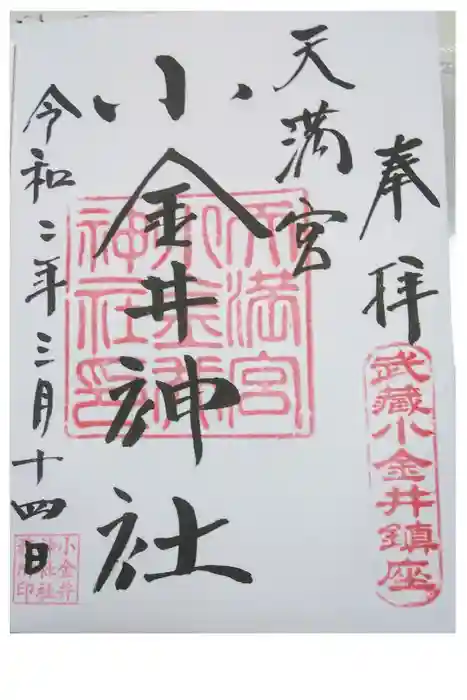 奉拝
武蔵小金井鎮座
天満宮
天満宮
小金井
神社印
小金井神社
令和二年三月十四日
小金井
神社社